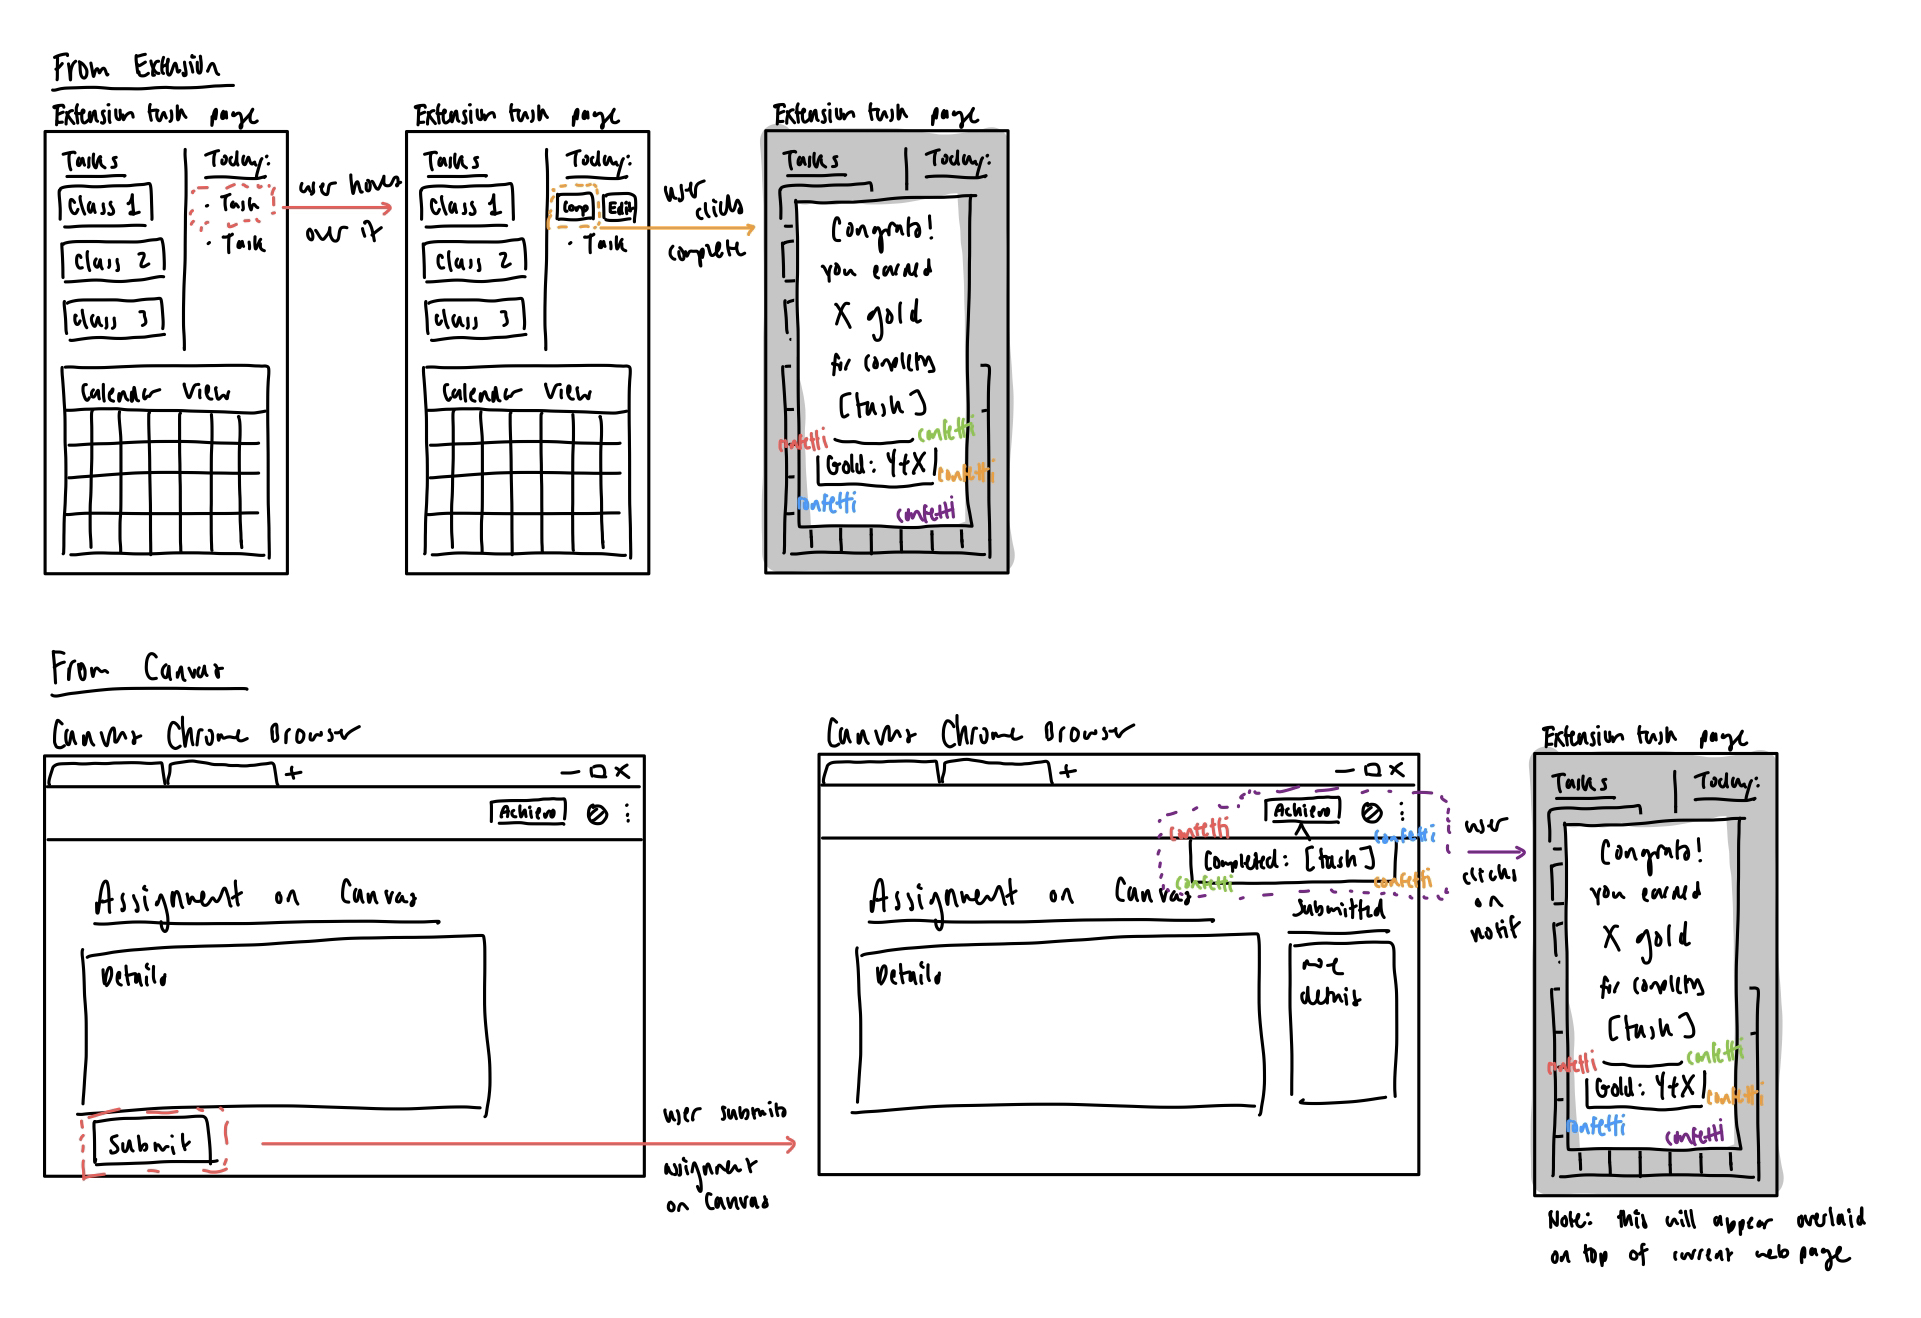 From Extension
Extension task page
Tasks
Today:
Class 1
· Task
Class 2
· Task
Class 3
Calendar View
user hovers
over it
Extension task page
Tasks
Today:
Class 1
Comp
Edit
Class 2
· Task
Class 3
Calendar View
user
clicks
complete
Extension task page
Tasks
Today:
Congrats!
you earned
X gold
for completing
[task]
confetti
confetti
Gold: Y+X
confetti
confetti
confetti
From Canvas
Canvas Chrome Browser
+
Achievo
Assignment on Canvas
Details
Submit
user submits
assignment
on Canvas
Canvas Chrome Browser
+
Achievo
confetti
confetti
Completed: [task]
confetti
confetti
Assignment on Canvas
Submitted
Details
more
details
user
clicks
on
notif
Extension task page
Tasks
Today:
Congrats!
you earned
X gold
for completing
[task]
confetti
confetti
Gold: Y+X
confetti
confetti
confetti
Note: this will appear overlaid
on top of current web page